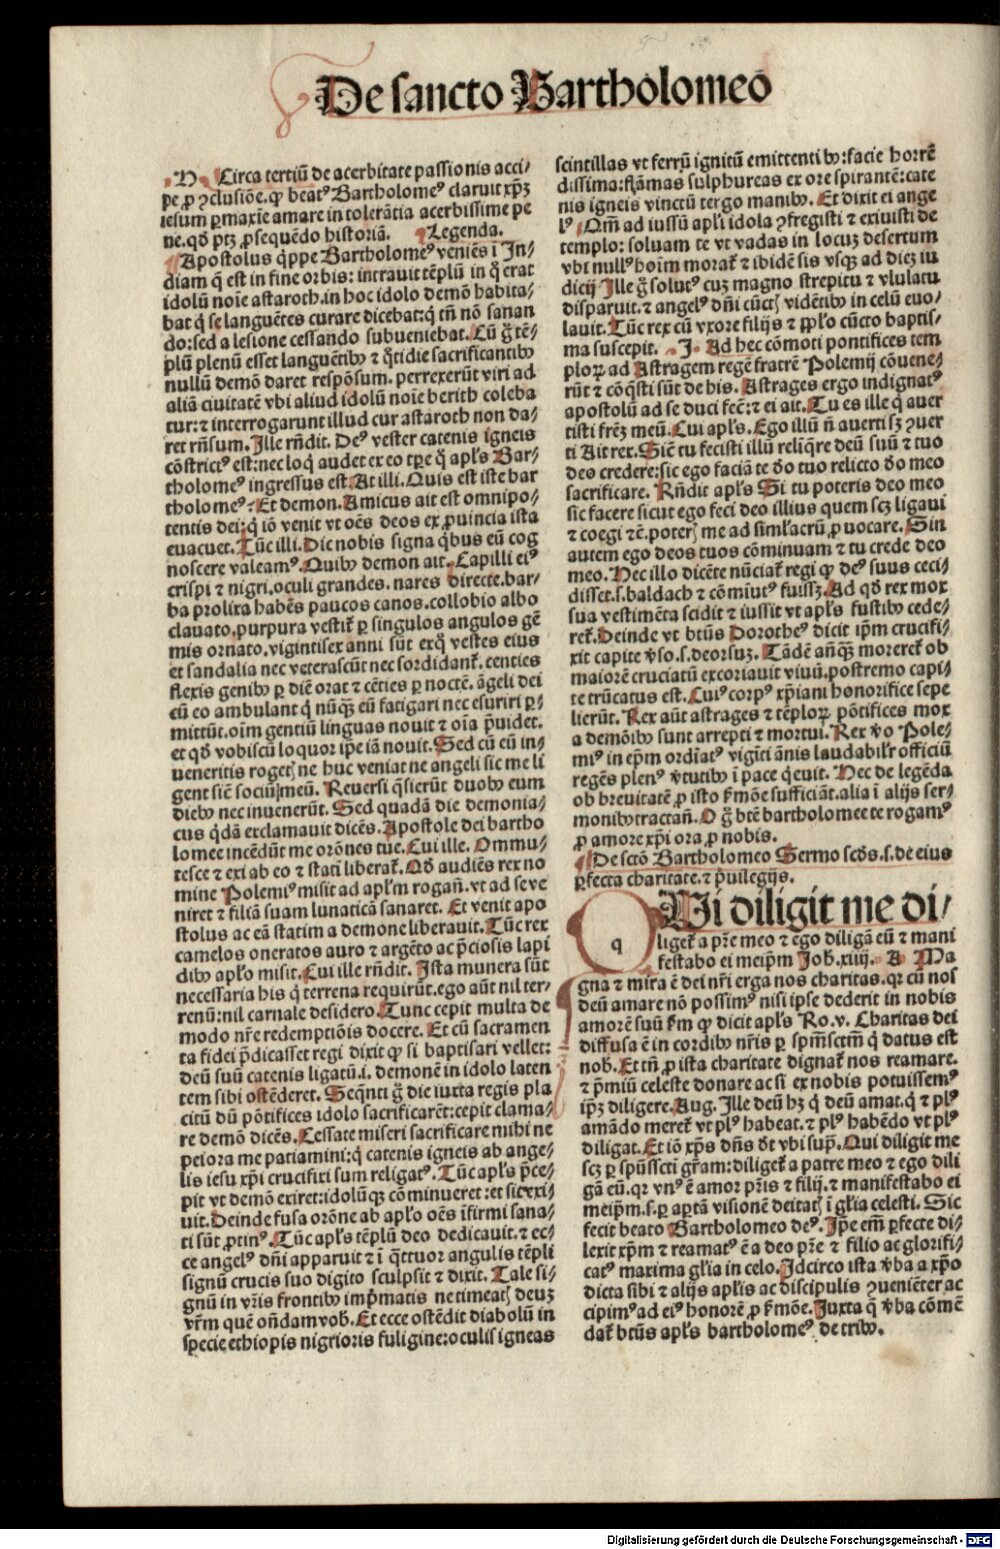 De sancto Bartholomeo
·N· Circa tertiū de acerbitate passionis acci⸗
pe ꝓ ꝯclusiōe. ꝙ beatꝰ Bartholomeꝰ claruit xp̄ꝫ
iesum ꝑmaxīe amare in tolerātia acerbissime pe
ne. qð ptꝫ ꝓsequēdo historiā. Legenda.
Apostolus q̇ppe Bartholomeꝰ veniēs ī In⸗
diam q̄ est in fine orbis: intrauit tēplū in q̇ erat
idolū noīe astaroth. in hoc idolo demō habita⸗
bat q̇ se languētes curare dicebat: q̇ tn̄ nō sanan
do: sed a lesione cessando subueniebat. Cū g̊ tē⸗
plū plenū esset languētibꝰ ⁊ q̇tidie sacrificantibꝰ
nullū demō daret respōsum. perrexerūt viri ad
aliā ciuitatē vbi aliud idolū noīe berith coleba
tur: ⁊ interrogarunt illud cur astaroth non da⸗
ret rn̄sum. Ille rn̄dit. Deꝰ vester catenis igneis
cōstrictꝰ est: nec loq̇ audet ex eo tp̄e q̊ apl̓s Bar⸗
tholomeꝰ ingressus est. At illi. Quis est iste bar
tholomeꝰ? Et demon. Amicus ait est omnipo⸗
tentis dei: q̇ iō venit vt oēs deos ex ꝓuincia ista
euacuet. Tūc illi. Dic nobis signa q̇bus eū cog
noscere valeamꝰ. Quibꝰ demon ait. Capilli eiꝰ
crispi ⁊ nigri. oculi grandes. nares directe. bar⸗
ba prolixa habēs paucos canos. collobio albo
clauato. purpura vestit̄ ꝑ singulos angulos gē
mis ornato. vigintisex anni sūt exq̊ vestes eius
et sandalia nec veterascūt nec sordidant̄. centies
flexis genibꝰ ꝑ diē orat ⁊ cēties ꝑ noctē. āgeli dei
cū eo ambulant q̇ nūqꝫ eū fatigari nec esuriri ꝑ⸗
mittūt. oīm gentiū linguas nouit ⁊ oīa p̄uidet.
et qð vobiscū loquor ip̄e iā nouit. Sed cū eū in⸗
ueneritis rogetꝭ ne huc veniat ne angeli sic me li
gent sic̄ sociū meū. Reuersi q̄sierūt duobꝰ eum
diebꝰ nec inuenerūt. Sed quadā die demonia⸗
cus q̇dā exclamauit dicēs. Apostole dei bartho
lomee incēdūt me orōnes tue. Cui ille. Ommu⸗
tesce ⁊ exi ab eo ⁊ statī liberat̄. Qð audiēs rex no
mine Polemiꝰ misit ad apl̓m rogan̄. vt ad se ve
niret ⁊ filiā suam lunaticā sanaret. Et venit apo
stolus ac eā statim a demone liberauit. Tūc rex
camelos oneratos auro ⁊ argēto ac p̄ciosis lapi
dibꝰ apl̓o misit. Cui ille rn̄dit. Ista munera sūt
necessaria his q̇ terrena requirūt. ego aūt nil ter⸗
renū: nil carnale desidero. Tunc cepit multa de
modo nr̄e redemptiōis docere. Et cū sacramen
ta fidei p̄dicasset regi dixit ꝙ si baptisari vellet:
deū suū catenis ligatū. i. demonē in idolo laten
tem sibi ostēderet. Seq̄nti g̊ die iuxta regis pla
citū dū pōtifices idolo sacrificarēt: cepit clama⸗
re demō dicēs. Cessate miseri sacrificare mihi ne
peiora me patiamini: q̇ catenis igneis ab ange⸗
lis iesu xp̄i crucifixi sum religatꝰ. Tūc apl̓s p̄ce⸗
pit vt demō exiret: idolūqꝫ cōminueret: et sic exi⸗
uit. Deinde fusa orōne ab apl̓o oēs īfirmi sana⸗
ti sūt ꝓtinꝰ. Tūc apl̓s tēplū deo dedicauit. ⁊ ec⸗
ce angelꝰ dn̄i apparuit ⁊ ī q̄ttuor angulis tēpli
signū crucis suo digito sculpsit ⁊ dixit. Tale si⸗
gnū in vr̄is frontibꝰ imp̄matis ne timeatꝭ deuꝫ
vr̄m quē on̄dam vob̄. Et ecce ostēdit diabolū in
specie ethiopis nigrioris fuligine: oculis igneas
scintillas vt ferrū ignitū emittentibꝰ: facie horrē
dissima: flāmas sulphureas ex ore spirantē: cate
nis igneis vinctū tergo manibꝰ. Et dixit ei ange
lꝰ. Qm̄ ad iussū apl̓i idola ꝯfregisti ⁊ exiuisti de
templo: soluam te vt vadas in locuꝫ desertum
vbi nullꝰ hoīm morat̄ ⁊ ibidē sis vsqꝫ ad dieꝫ iu
dicij. Ille g̊ solutꝰ cuꝫ magno strepitu ⁊ vlulatu
disparuit. ⁊ angelꝰ dn̄i cūctꝭ vidētibꝰ in celū euo⸗
lauit. Tūc rex cū vxore filijs ⁊ ppl̓o cūcto baptis⸗
ma suscepit. ·I· Ad hec cōmoti pontifices tem
ploꝝ ad Astragem regē fratrē Polemij cōuene⸗
rūt ⁊ cōq̄sti sūt de his. Astrages ergo indignatꝰ
apostolū ad se duci fec̄: ⁊ ei ait. Tu es ille q̇ auer
tisti fr̄eꝫ meū. Cui apl̓s. Ego illū n̄ auerti sꝫ ꝯuer
ti Ait rex. Sic̄ tu fecisti illū reliq̄re deū suū ⁊ tuo
deo credere: sic ego faciā te ðo tuo relicto ðo meo
sacrificare. Rn̄dit apl̓s Si tu poteris deo meo
sic facere sicut ego feci deo illius quem scꝫ ligaui
⁊ coegi ⁊c̄. poterꝭ me ad siml̓acrū ꝓuocare. Sin
autem ego deos tuos cōminuam ⁊ tu crede deo
meo. Hec illo dicēte nūciat̄ regi ꝙ deꝰ suus ceci⸗
disset. s. baldach ⁊ cōmīutꝰ fuissꝫ. Ad qð rex mox
sua vestimēta scidit ⁊ iussit vt apl̓s fustibꝰ cede⸗
ret̄. Deinde vt btūs Dorotheꝰ dicit ip̄m crucifi⸗
xit capite v̓so. s. deorsuꝫ. Tādē anq̄ꝫ moreret̄ ob
maiorē cruciatū excoriauit viuū. postremo capi⸗
te trūcatus est. Cuiꝰ corpꝰ xp̄iani honorifice sepe
lierūt. Rex aūt astrages ⁊ tēploꝝ pōtifices mox
a demōibꝰ sunt arrepti ⁊ mortui. Rex v̓o Pole⸗
miꝰ in ep̄m ordīatꝰ vigīti ānis laudabil̓r officiū
regēs plenꝰ v̓tutibꝰ ī pace q̇euit. Hec de legēda
ob breuitatē ꝓ isto s̄mōe sufficiāt. alia ī alijs ser⸗
monibꝰ tractan̄. O g̊ btē bartholomee te rogamꝰ
ꝓ amore xp̄i ora ꝓ nobis.
De sctō Bartholomeo Sermo scðs. s. de eius
ꝑfecta charitate. ⁊ ṗuilegijs.
Qui diligit me di⸗
q
liget̄ a pr̄e meo ⁊ ego diligā eū ⁊ mani
festabo ei meip̄m Joh̄. xiiij. ·A· Ma
gna ⁊ mira ē dei nr̄i erga nos charitas. qꝛ cū nos
deū amare nō possimꝰ nisi ipse dederit in nobis
amorē suū s̄m ꝙ dicit apl̓s Ro. v. Charitas dei
diffusa ē in cordibꝰ nr̄is ꝑ spm̄sctm̄ q̇ datus est
nob̄. Et tn̄ ꝓ ista charitate dignat̄ nos reamare.
⁊ p̄miū celeste donare ac si ex nobis potuissemꝰ
ip̄ꝫ diligere. Aug. Ille deū hꝫ q̇ deū amat. q̇ ⁊ plꝰ
amādo meret̄ vt plꝰ habeat. ⁊ plꝰ habēdo vt plꝰ
diligat. Et iō xp̄s dn̄s ðt vbi sup̄. Qui diligit me
scꝫ ꝑ spūssctī gr̄am: diliget̄ a patre meo ⁊ ego dili
gā eū. qꝛ vnꝰ ē amor pr̄is ⁊ filij. ⁊ manifestabo ei
meip̄m. s. ꝑ aꝑtā visionē deitatꝭ ī gl̓ia celesti. Sic
fecit beato Bartholomeo deꝰ. Ip̄e em̄ ꝑfecte di⸗
lexit xp̄m ⁊ reamatꝰ ē a deo pr̄e ⁊ filio ac glorifi⸗
catꝰ maxima gl̓ia in celo. Idcirco ista v̓ba a xp̄o
dicta sibi ⁊ alijs apl̓is ac discipulis ꝯueniēter ac
cipimꝰ ad eiꝰ honorē ꝓ s̄mōe. Iuxta q̄ v̓ba cōmē
dat̄ btūs apl̓s bartholomeꝰ de tribꝰ.
Digitalisierung gefördert durch die Deutsche Forschungsgemeinschaft - DFG